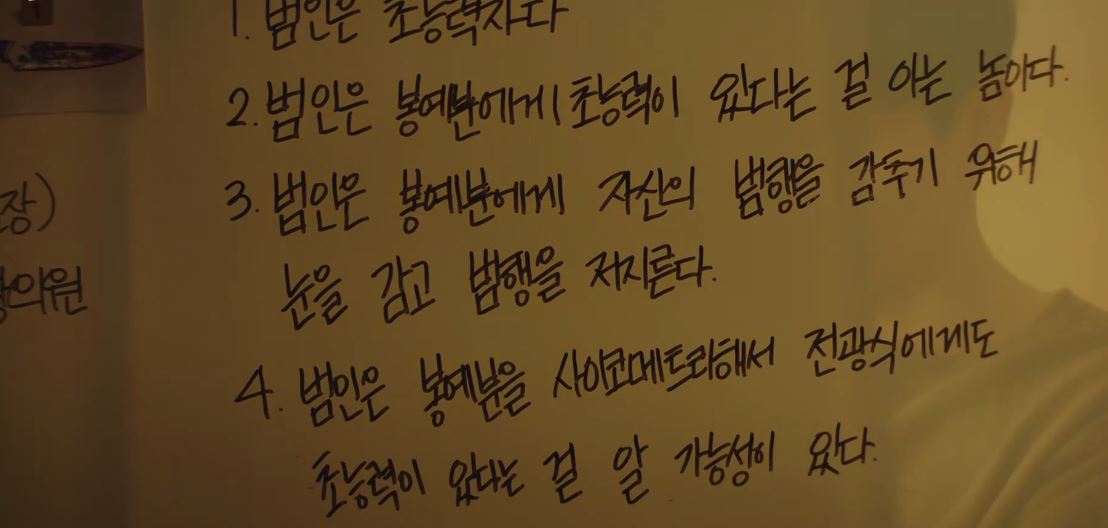 1. 범인은 초능력자다
2. 범인은 봉예분에게 초능력이 있다는 걸 아는 놈이다.
3. 범인은 봉예분에게 자신의 범행을 감추기 위해
눈을 감고 범행을 저지른다.
4. 범인은 봉예분을 사이코메트리해서 전광식에게도
초능력이 있다는 걸 알 가능성이 있다.
장)
의원